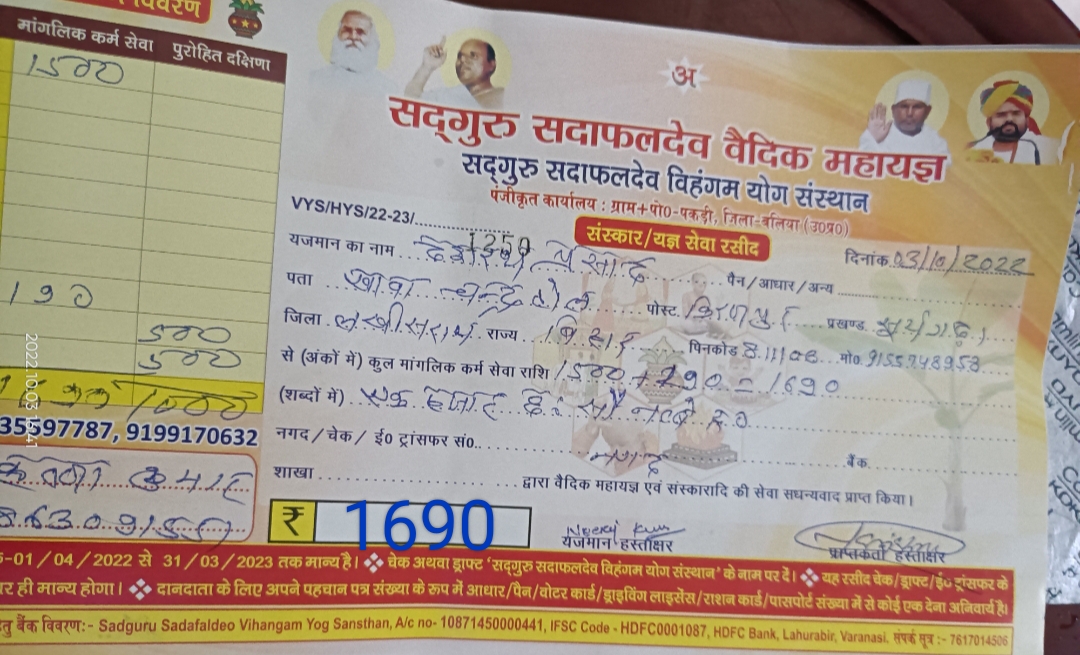 विवरण
मांगलिक कर्म सेवा पुरोहित दक्षिणा
1500
190
500
500
1000
35597787, 9199170632
कुमार
अ
सद्गुरु सदाफलदेव वैदिक महायज्ञ
सद्गुरु सदाफलदेव विहंगम योग संस्थान
पंजीकृत कार्यालय : ग्राम+पो0-पकड़ी, जिला-बलिया (उ0प्र0)
VYS/HYS/22-23/ 1250
संस्कार/यज्ञ सेवा रसीद
दिनांक 03/10/2022
यजमान का नाम प्रसाद पैन/आधार/अन्य
पता पोस्ट प्रखण्ड
जिला लखीसराय राज्य बिहार पिनकोड 811106 मो0 9155748953
से (अंकों में) कुल मांगलिक कर्म सेवा राशि 1500 + 190 = 1690
(शब्दों में) एक हजार छः सौ नब्बे रु0
नगद/चेक/ई0 ट्रांसफर सं0 नगद बैंक
शाखा द्वारा वैदिक महायज्ञ एवं संस्कारादि की सेवा सधन्यवाद प्राप्त किया।
₹ 1690
यजमान हस्ताक्षर
प्राप्तकर्ता हस्ताक्षर
-01/04/2022 से 31/03/2023 तक मान्य है। ❖ चेक अथवा ड्राफ्ट 'सद्गुरु सदाफलदेव विहंगम योग संस्थान' के नाम पर दें। ❖ यह रसीद चेक/ड्राफ्ट/ई0 ट्रांसफर के
ही मान्य होगा। ❖ दानदाता के लिए अपने पहचान पत्र संख्या के रूप में आधार/पैन/वोटर कार्ड/ड्राइविंग लाइसेंस/राशन कार्ड/पासपोर्ट संख्या में से कोई एक देना अनिवार्य है।
बैंक विवरण:- Sadguru Sadafaldeo Vihangam Yog Sansthan, A/c no- 10871450000441, IFSC Code - HDFC0001087, HDFC Bank, Lahurabir, Varanasi. संपर्क सूत्र :- 7617014506